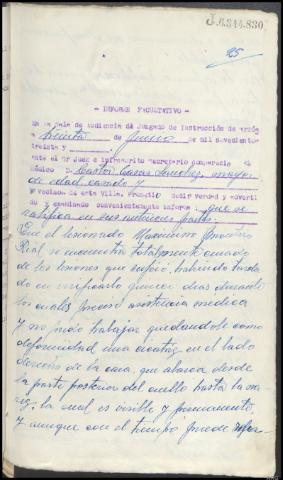 J.6.344.830
95
- INFORME FACULTATIVO -
En la Sala de audiencia del Juzgado de Instrucción de
a treinta de Junio de mil novecientos
treinta y
ante el Sr Juez e infrascrito Secretario comparecio el
Médico D. Castor Casas Sanchez, mayor
de edad casado y
Vecino de esta Villa. Prometió decir verdad y adverti
do y examinado convenientemente informa: que se
ratifica en sus anteriores partes.
Que el lesionado Maximino
Real, se encuentra totalmente curado
de las lesiones que sufrió, habiendo tarda
do en verificarlo quince dias durante
los cuales precisó asistencia medica
y no pudo trabajar quedandole como
deformidad una cicatriz en el lado
derecho de la cara, que abarca desde
la parte posterior del cuello hasta la na
riz, la cual es visible y permanente,
y aunque con el tiempo puede